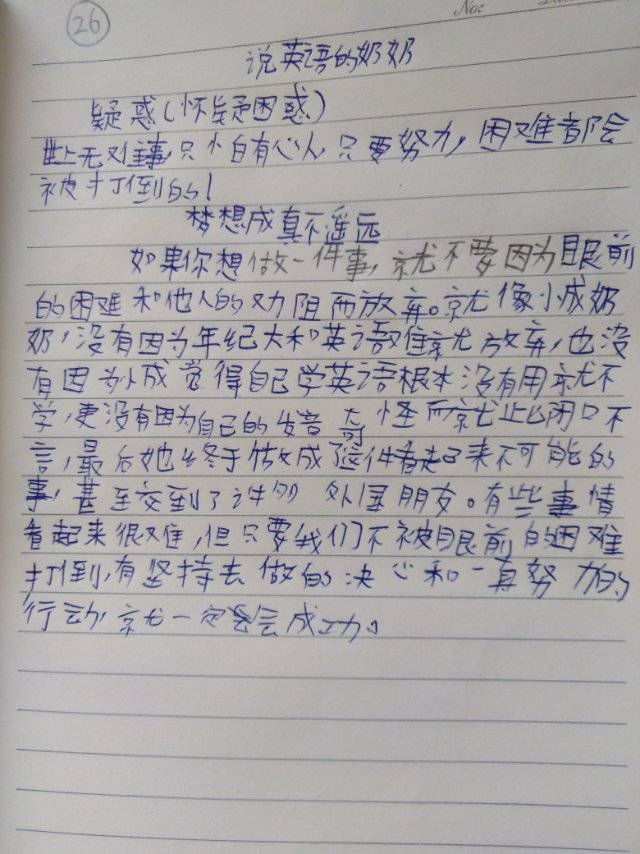 26
No:
说英语的奶奶
疑惑(怀疑困惑)
世上无难事,只怕有心人,只要努力,困难都会
被打倒的!
梦想成真不遥远
如果你想做一件事,就不要因为眼前
的困难和他人的劝阻而放弃。就像小成奶
奶,没有因为年纪大和英语难就放弃,也没
有因为小成觉得自己学英语根本没有用就不
学,更没有因为自己的发音奇怪而就此闭口不
言,最后她终于做成了这件看起来不可能的
事,甚至交到了许多外国朋友。有些事情
看起来很难,但只要我们不被眼前的困难
打倒,有坚持去做的决心和一直努力的
行动,就一定会成功。